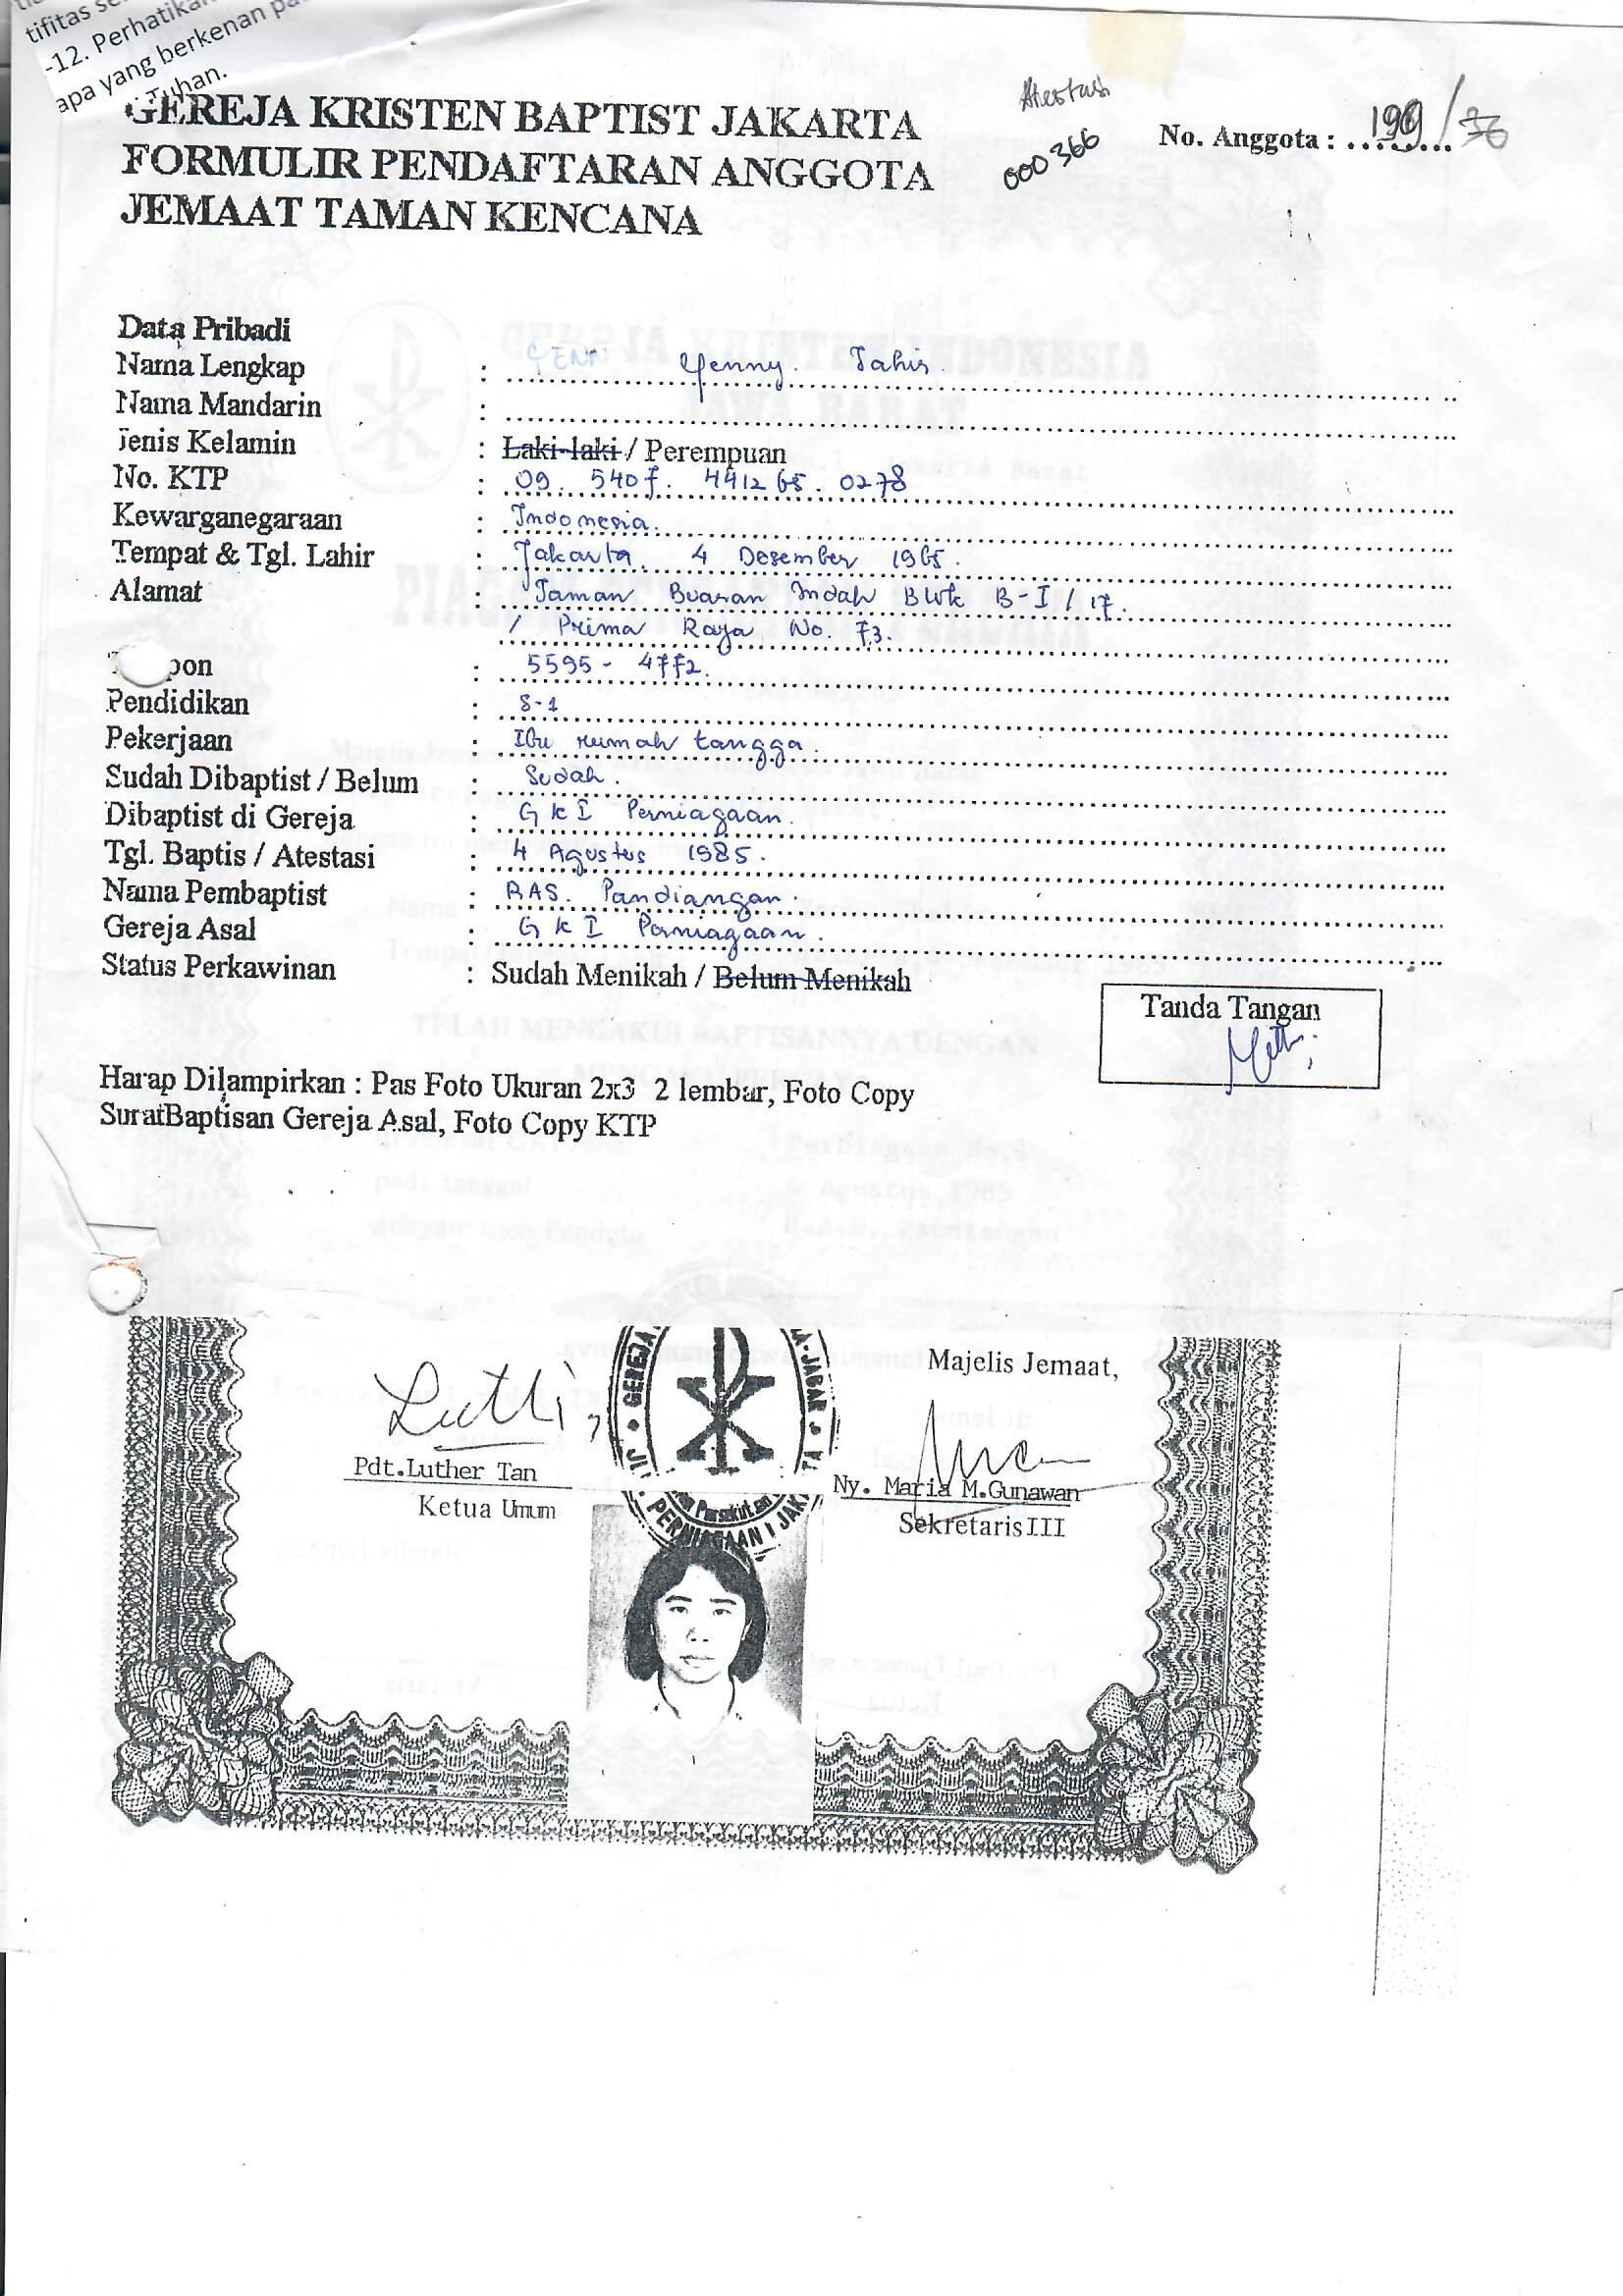 tifitas
-12. Perhatikan
apa yang berkenan
Tuhan.
GEREJA KRISTEN BAPTIST JAKARTA
FORMULIR PENDAFTARAN ANGGOTA
JEMAAT TAMAN KENCANA
Atestasi
000366
No. Anggota :
Data Pribadi
Nama Lengkap : Yenny Tahir
Nama Mandarin :
Jenis Kelamin : Laki-laki / Perempuan
No. KTP : 09. 5407. 441265. 0278
Kewarganegaraan : Indonesia.
Tempat & Tgl. Lahir : Jakarta. 4 Desember 1965.
Alamat : Taman Buaran Indah Blok B-I / 17.
/ Prima Raya No. 73.
pon : 5595 - 4772.
Pendidikan : S-1
Pekerjaan : Ibu rumah tangga.
Sudah Dibaptist / Belum : Sudah.
Dibaptist di Gereja : GKI Perniagaan.
Tgl. Baptis / Atestasi : 4 Agustus 1985.
Nama Pembaptist : RAS. Pandiangan.
Gereja Asal : GKI Perniagaan.
Status Perkawinan : Sudah Menikah / Belum Menikah
Tanda Tangan
Harap Dilampirkan : Pas Foto Ukuran 2x3 2 lembar, Foto Copy
SuratBaptisan Gereja Asal, Foto Copy KTP
Majelis Jemaat,
Pdt.Luther Tan
Ny. Maria M.Gunawan
Ketua Umum
Sekretaris III
GEREJA
JABAR
PERNIAGAAN I